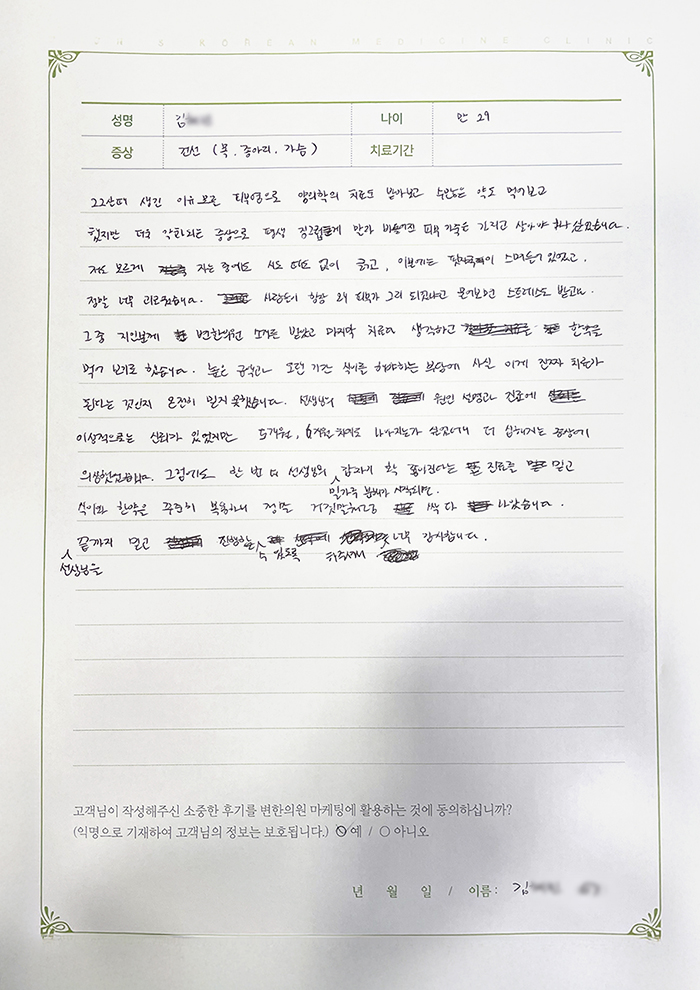 KOREAN MEDICINE CLINIC
성명 김 나이 만 29
증상 건선 (목. 종아리. 가슴) 치료기간
20살때 생긴 이유모를 피부염으로 양의학의 치료도 받아보고 수많은 약도 먹어보고
했지만 더욱 악화되는 증상으로 평생 징그럽게 만가 피부 가죽은 가리고 살아야 하나 싶었습니다.
저도 모르게 자는 중에도 시도 때도 없이 긁고, 이불에는 핏자국이 스며들어 있었고,
정말 너무 괴로웠습니다. 사람들이 항상 왜 피부가 그리 되었냐고 물어보면 스트레스도 받고요.
그 중 지인분께 변한의원 소개를 받았고 마지막 치료라 생각하고 한약을
먹어 보기로 했습니다. 높은 금액과 오랜 기간 식이를 해야하는 부담에 사실 이게 진짜 치료가
된다는 것인지 온전히 믿지 못했습니다. 선생님의 원인 설명과 진료에
이상적으로는 신뢰가 있었지만 5개월, 6개월 차에도 나아지는가 싶더니 더 심해지는 증상에
의심했었습니다. 그럼에도 한 번 더 선생님의 갑자기 확 좋아진다는 진료를 믿고
밀가루 분해가 시작되면,
식이와 한약을 꾸준히 복용하니 정말 거짓말처럼 싹 다 나았습니다.
끝까지 믿고 진행할 너무 감사합니다.
선생님을 수 있도록 해주셔서
고객님이 작성해주신 소중한 후기를 변한의원 마케팅에 활용하는 것에 동의하십니까?
(익명으로 기재하여 고객님의 정보는 보호됩니다.) 예 / 아니오
년 월 일 / 이름 : 김